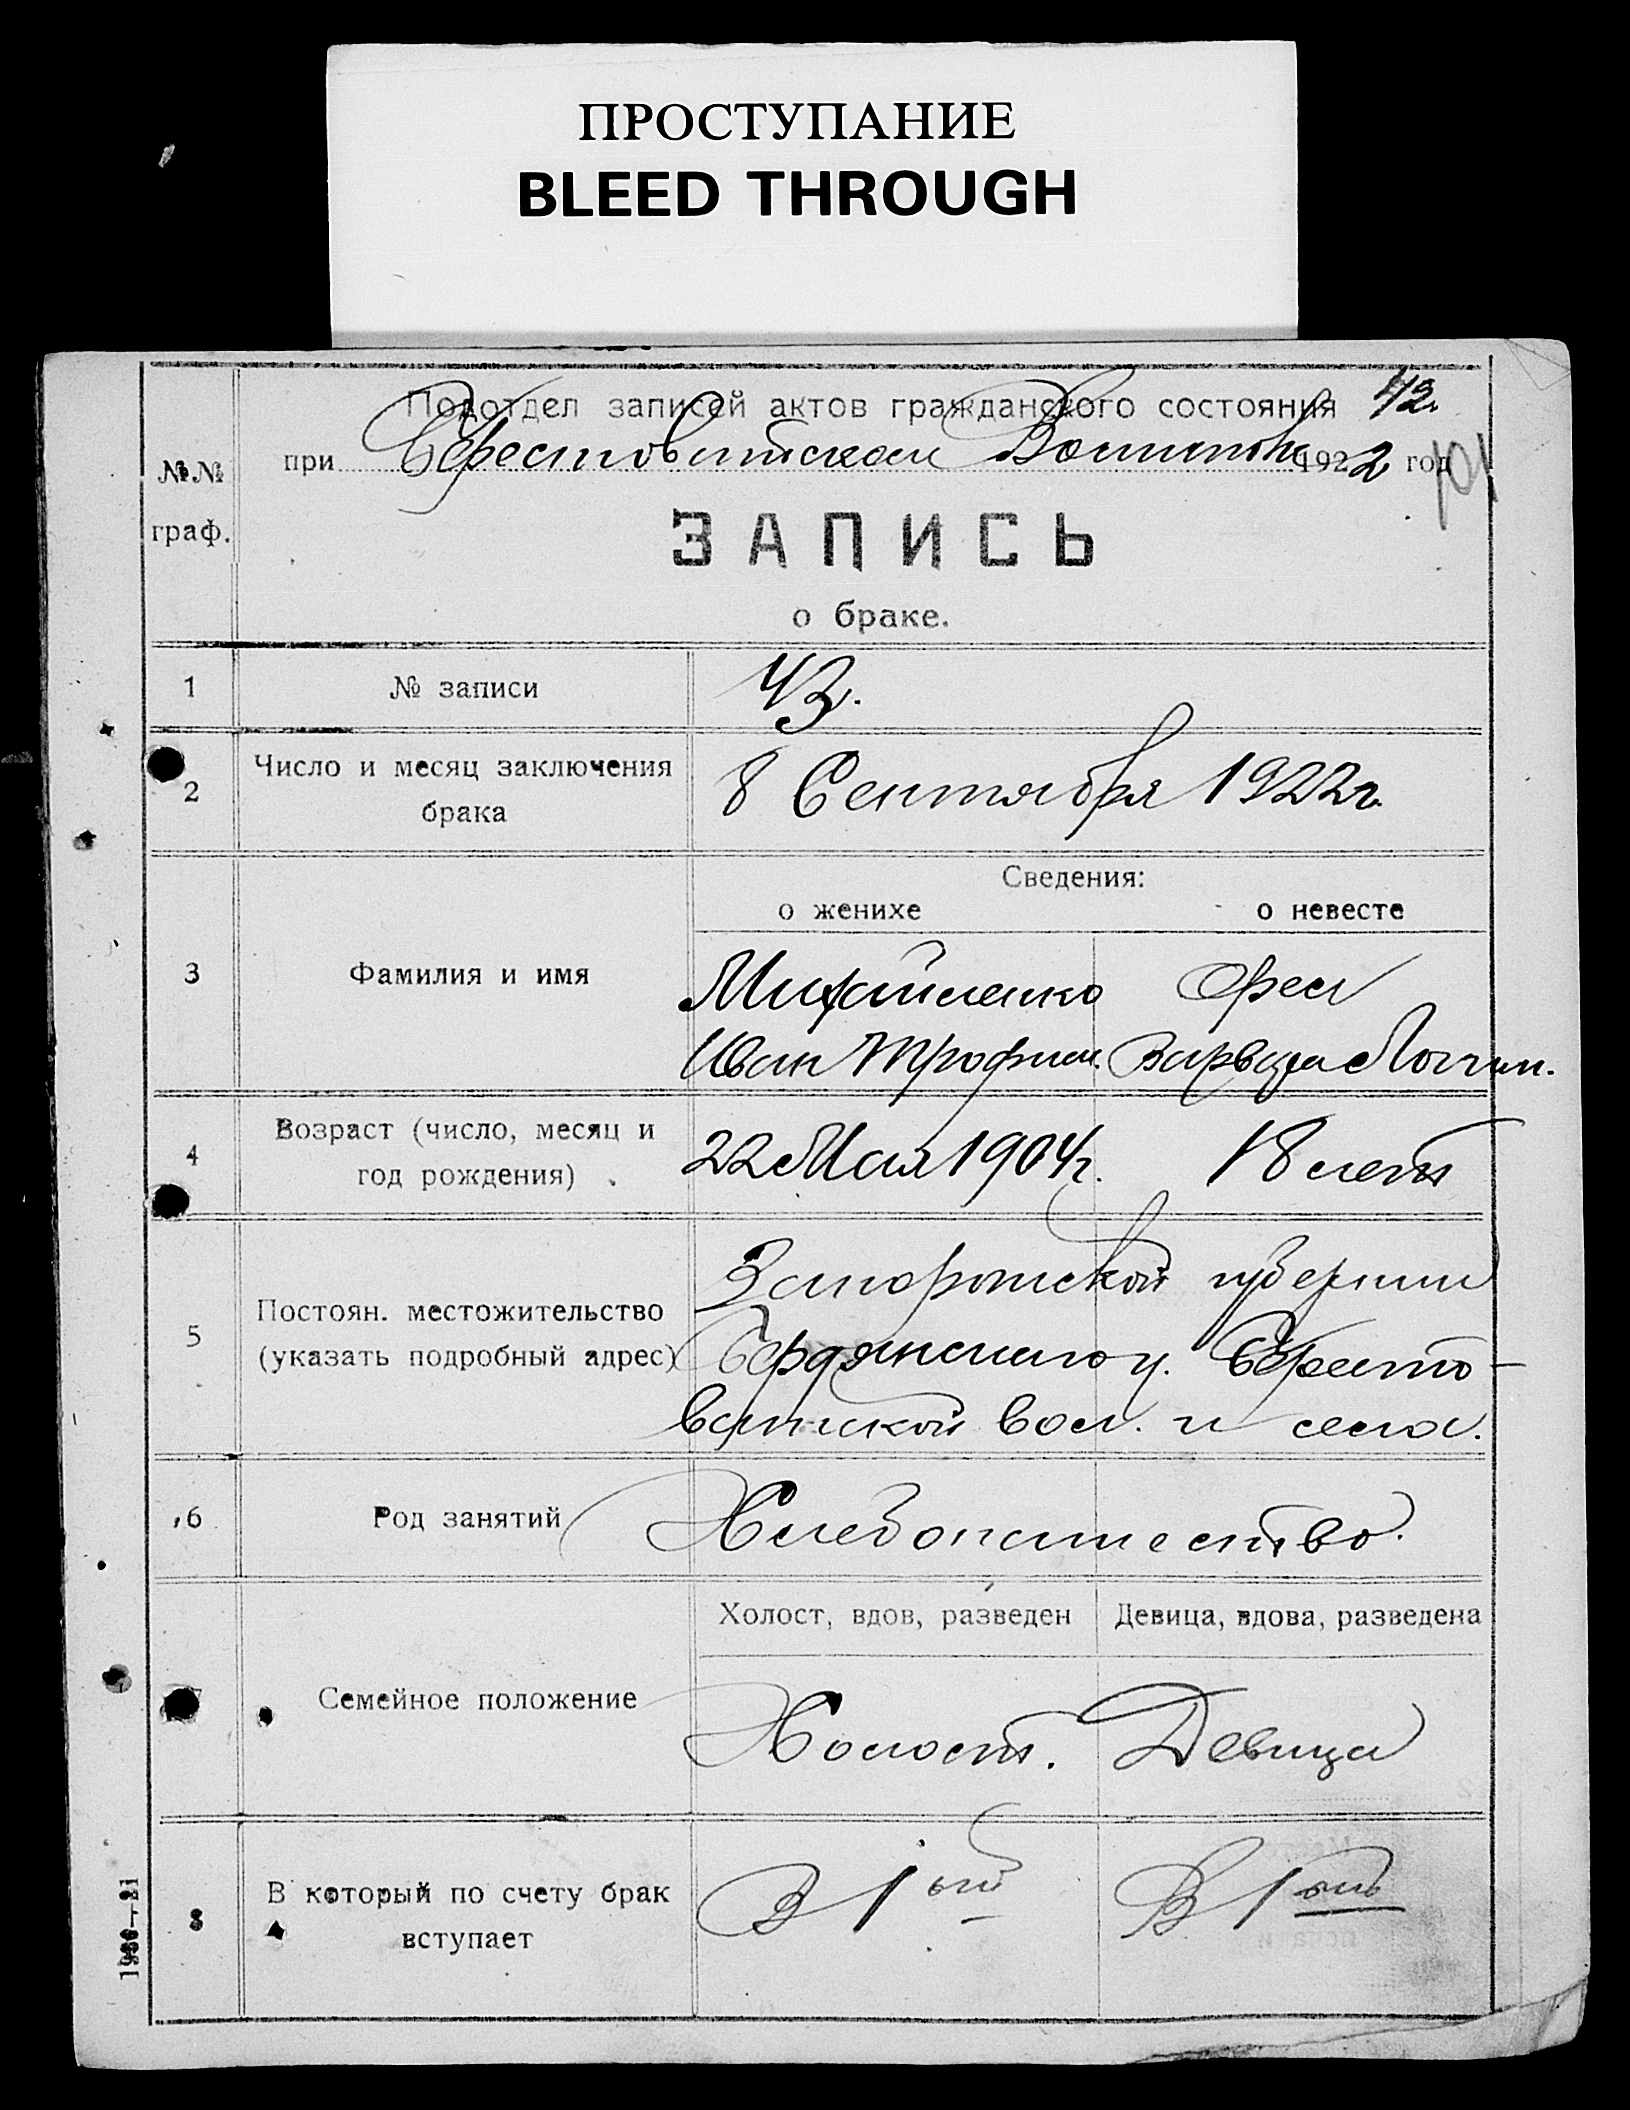 ПРОСТУПАНИЕ
BLEED THROUGH
Подотдел записей актов гражданского состояния 42
при Берестоватском Волисполк 1922 год
№№ граф.
ЗАПИСЬ
о браке.
1 № записи 43.
2 Число и месяц заключения брака 8 Сентября 1922 г.
Сведения:
о женихе о невесте
3 Фамилия и имя
Михайленко
Иван Трофим. Варвара
4 Возраст (число, месяц и год рождения) 22 Мая 1904 г. 18 лет
5 Постоян. местожительство (указать подробный адрес)
Запорожской губернии
Бердянского у. Бересто-
ватской вол. и села.
6 Род занятий Хлебопашество.
Холост, вдов, разведен Девица, вдова, разведена
Семейное положение Холост. Девица
8 В который по счету брак вступает В 1ый В 1ый